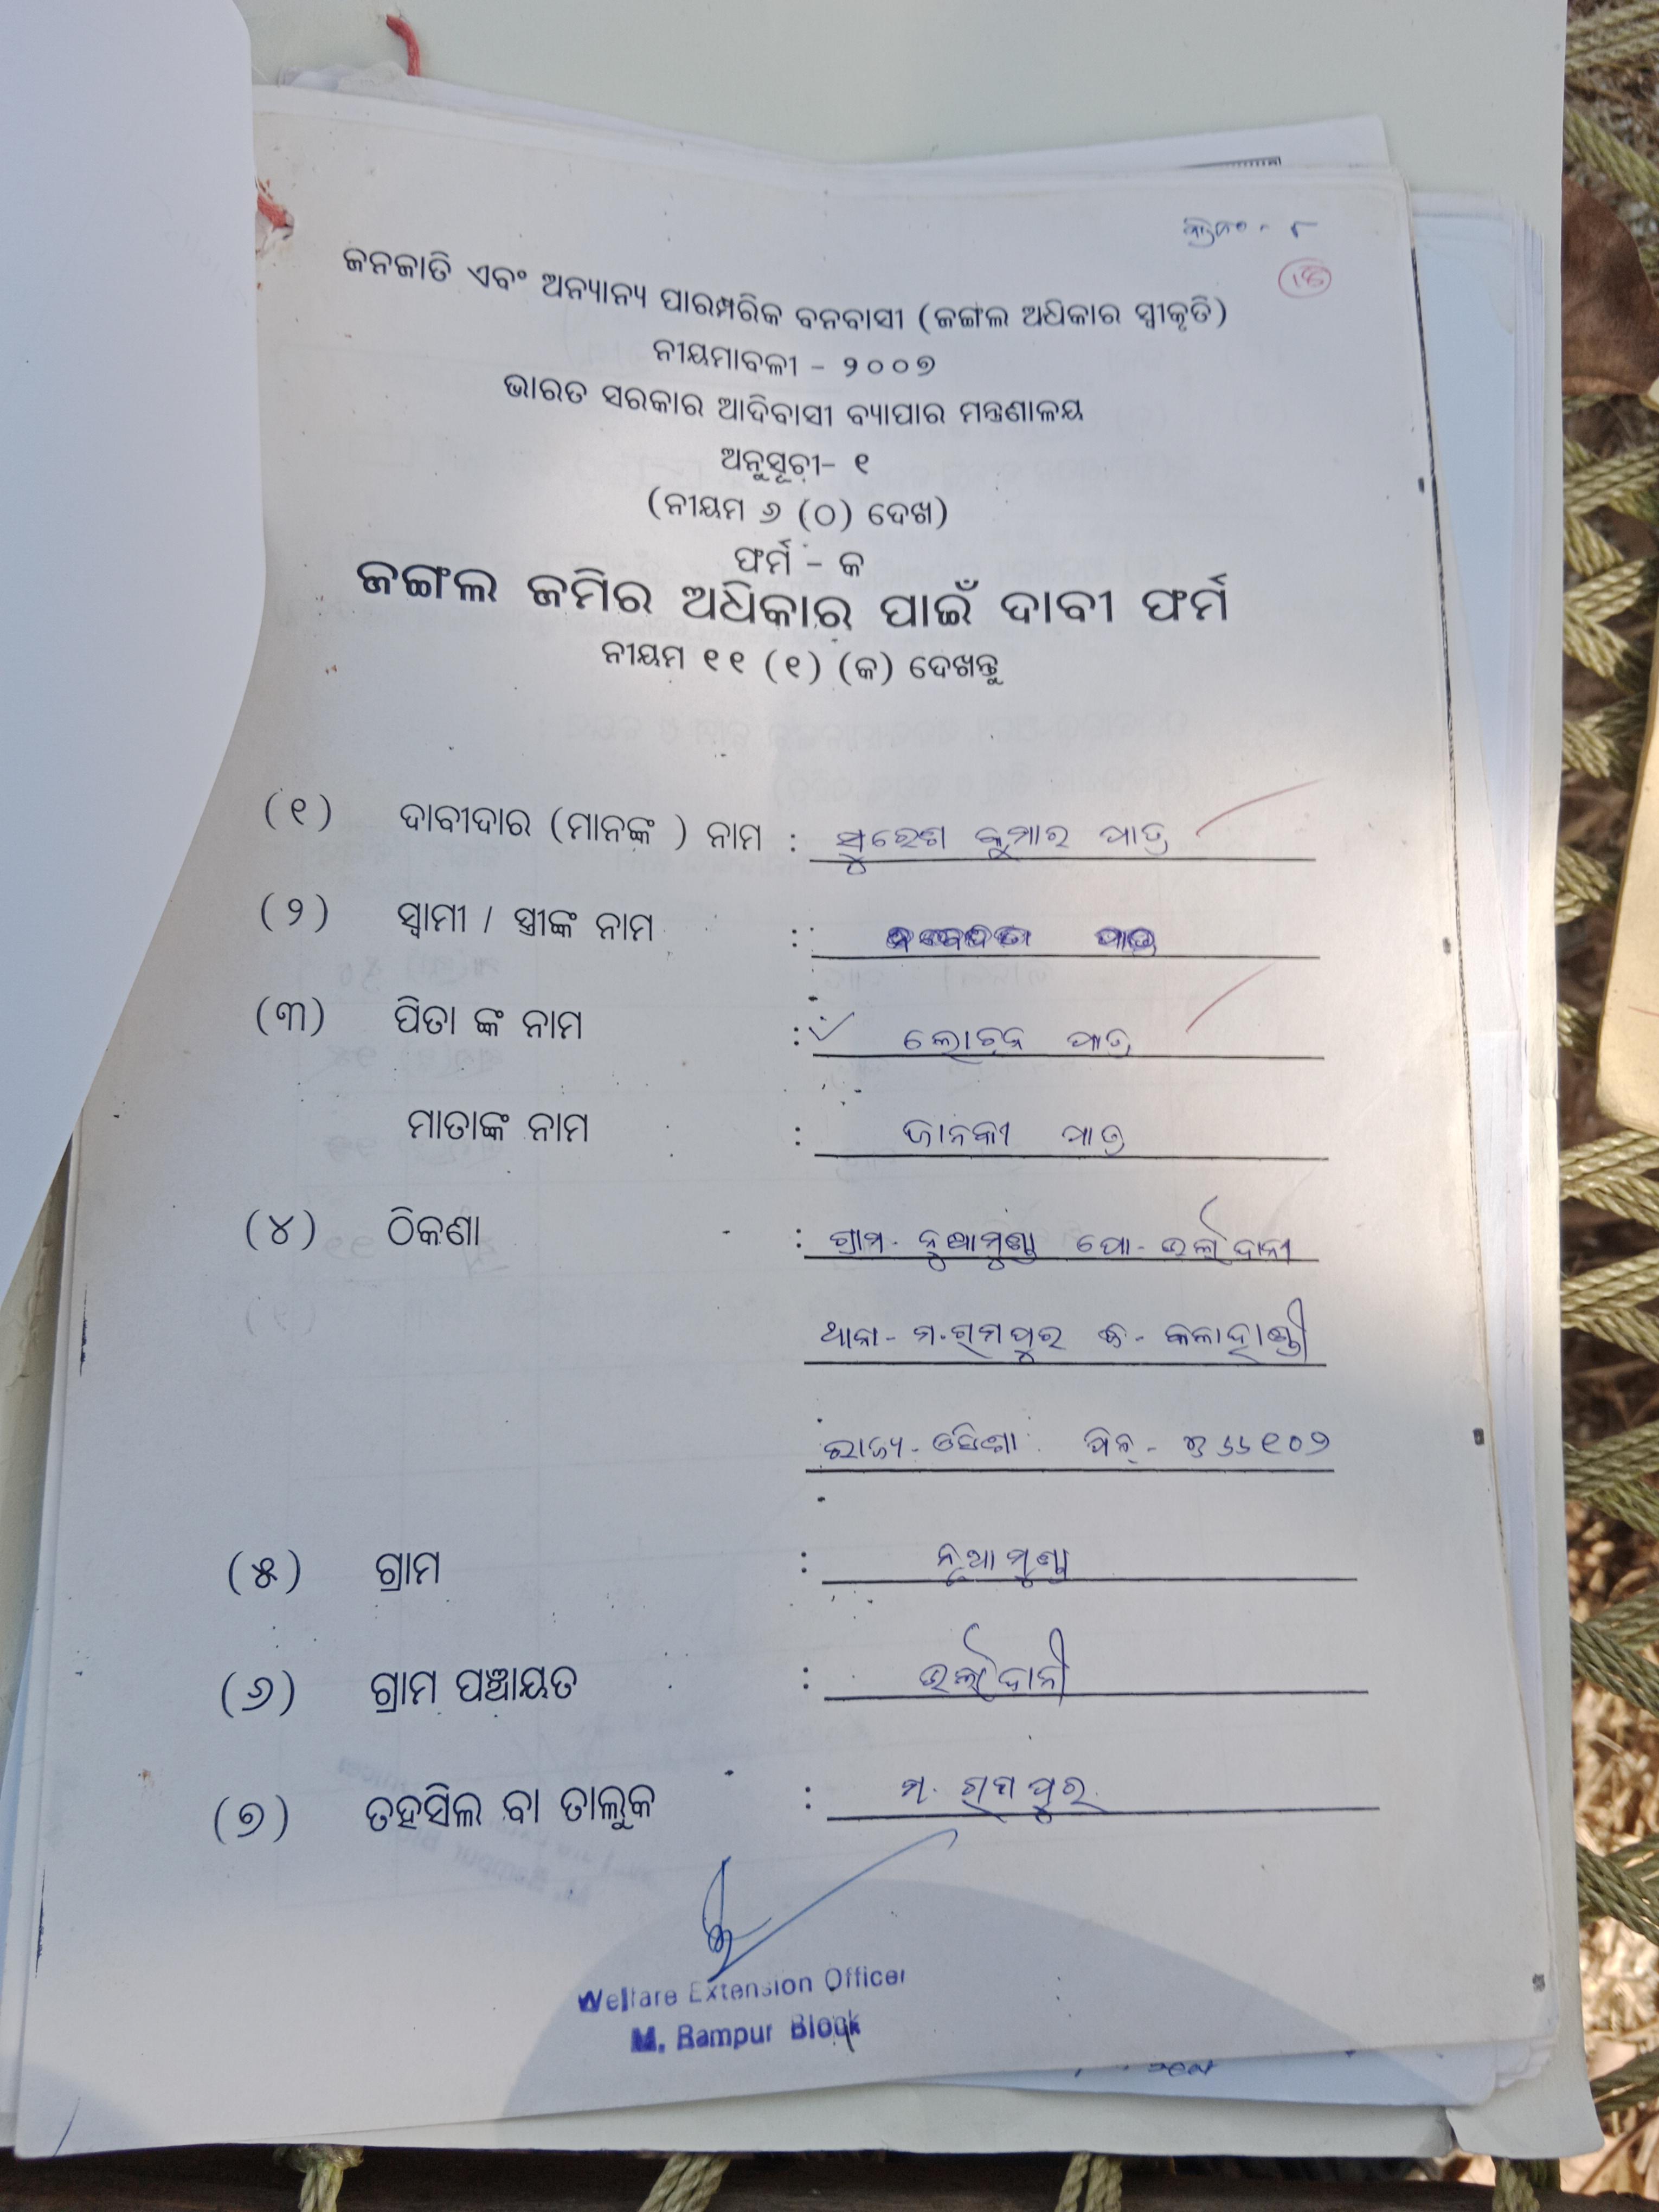 କ୍ରମିକ - ୮
ଜନଜାତି ଏବଂ ଅନ୍ୟାନ୍ୟ ପାରମ୍ପରିକ ବନବାସୀ (ଜଙ୍ଗଲ ଅଧିକାର ସ୍ୱୀକୃତି)
ନୀୟମାବଳୀ - ୨୦୦୭
ଭାରତ ସରକାର ଆଦିବାସୀ ବ୍ୟାପାର ମନ୍ତ୍ରଣାଳୟ
ଅନୁସୂଚୀ- ୧
(ନୀୟମ ୬ (୦) ଦେଖ)
ଫର୍ମ - କ
ଜଙ୍ଗଲ ଜମିର ଅଧିକାର ପାଇଁ ଦାବୀ ଫର୍ମ
ନୀୟମ ୧୧ (୧) (କ) ଦେଖନ୍ତୁ
(୧) ଦାବୀଦାର (ମାନଙ୍କ ) ନାମ : ସୁରେଶ କୁମାର ପାତ୍ର
(୨) ସ୍ୱାମୀ / ସ୍ତ୍ରୀଙ୍କ ନାମ : ପାତ୍ର
(୩) ପିତା ଙ୍କ ନାମ : ଲୋଚନ ପାତ୍ର
ମାତାଙ୍କ ନାମ : ଜାନକୀ ପାତ୍ର
(୪) ଠିକଣା : ଗ୍ରାମ- ନୁଆମୁଣ୍ଡା ପୋ-
ଥାନା- ମ.ରାମପୁର ଜି- କଳାହାଣ୍ଡି
ରାଜ୍ୟ- ଓଡିଶା ପିନ୍ - ୭୬୬୧୦୨
(୫) ଗ୍ରାମ : ନୂଆମୁଣ୍ଡା
(୬) ଗ୍ରାମ ପଞ୍ଚାୟତ :
(୭) ତହସିଲ ବା ତାଲୁକ : ମ. ରାମପୁର
Welfare Extension Officer
M. Rampur Block